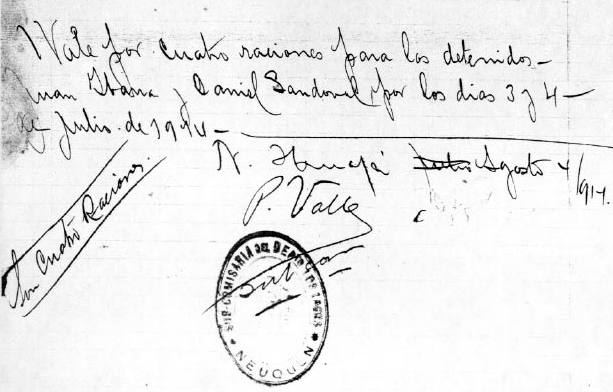 Vale por cuatro raciones para los detenidos –
Juan Ibarra y Daniel Sandovel, por los dias 3 y 4 –
de Julio de 1914 –
N. Huapí Julio Agosto 4/914.
P. Valle
Son Cuatro Raciones.
SUB-COMISARIA DEL DE LAGOS
NEUQUEN